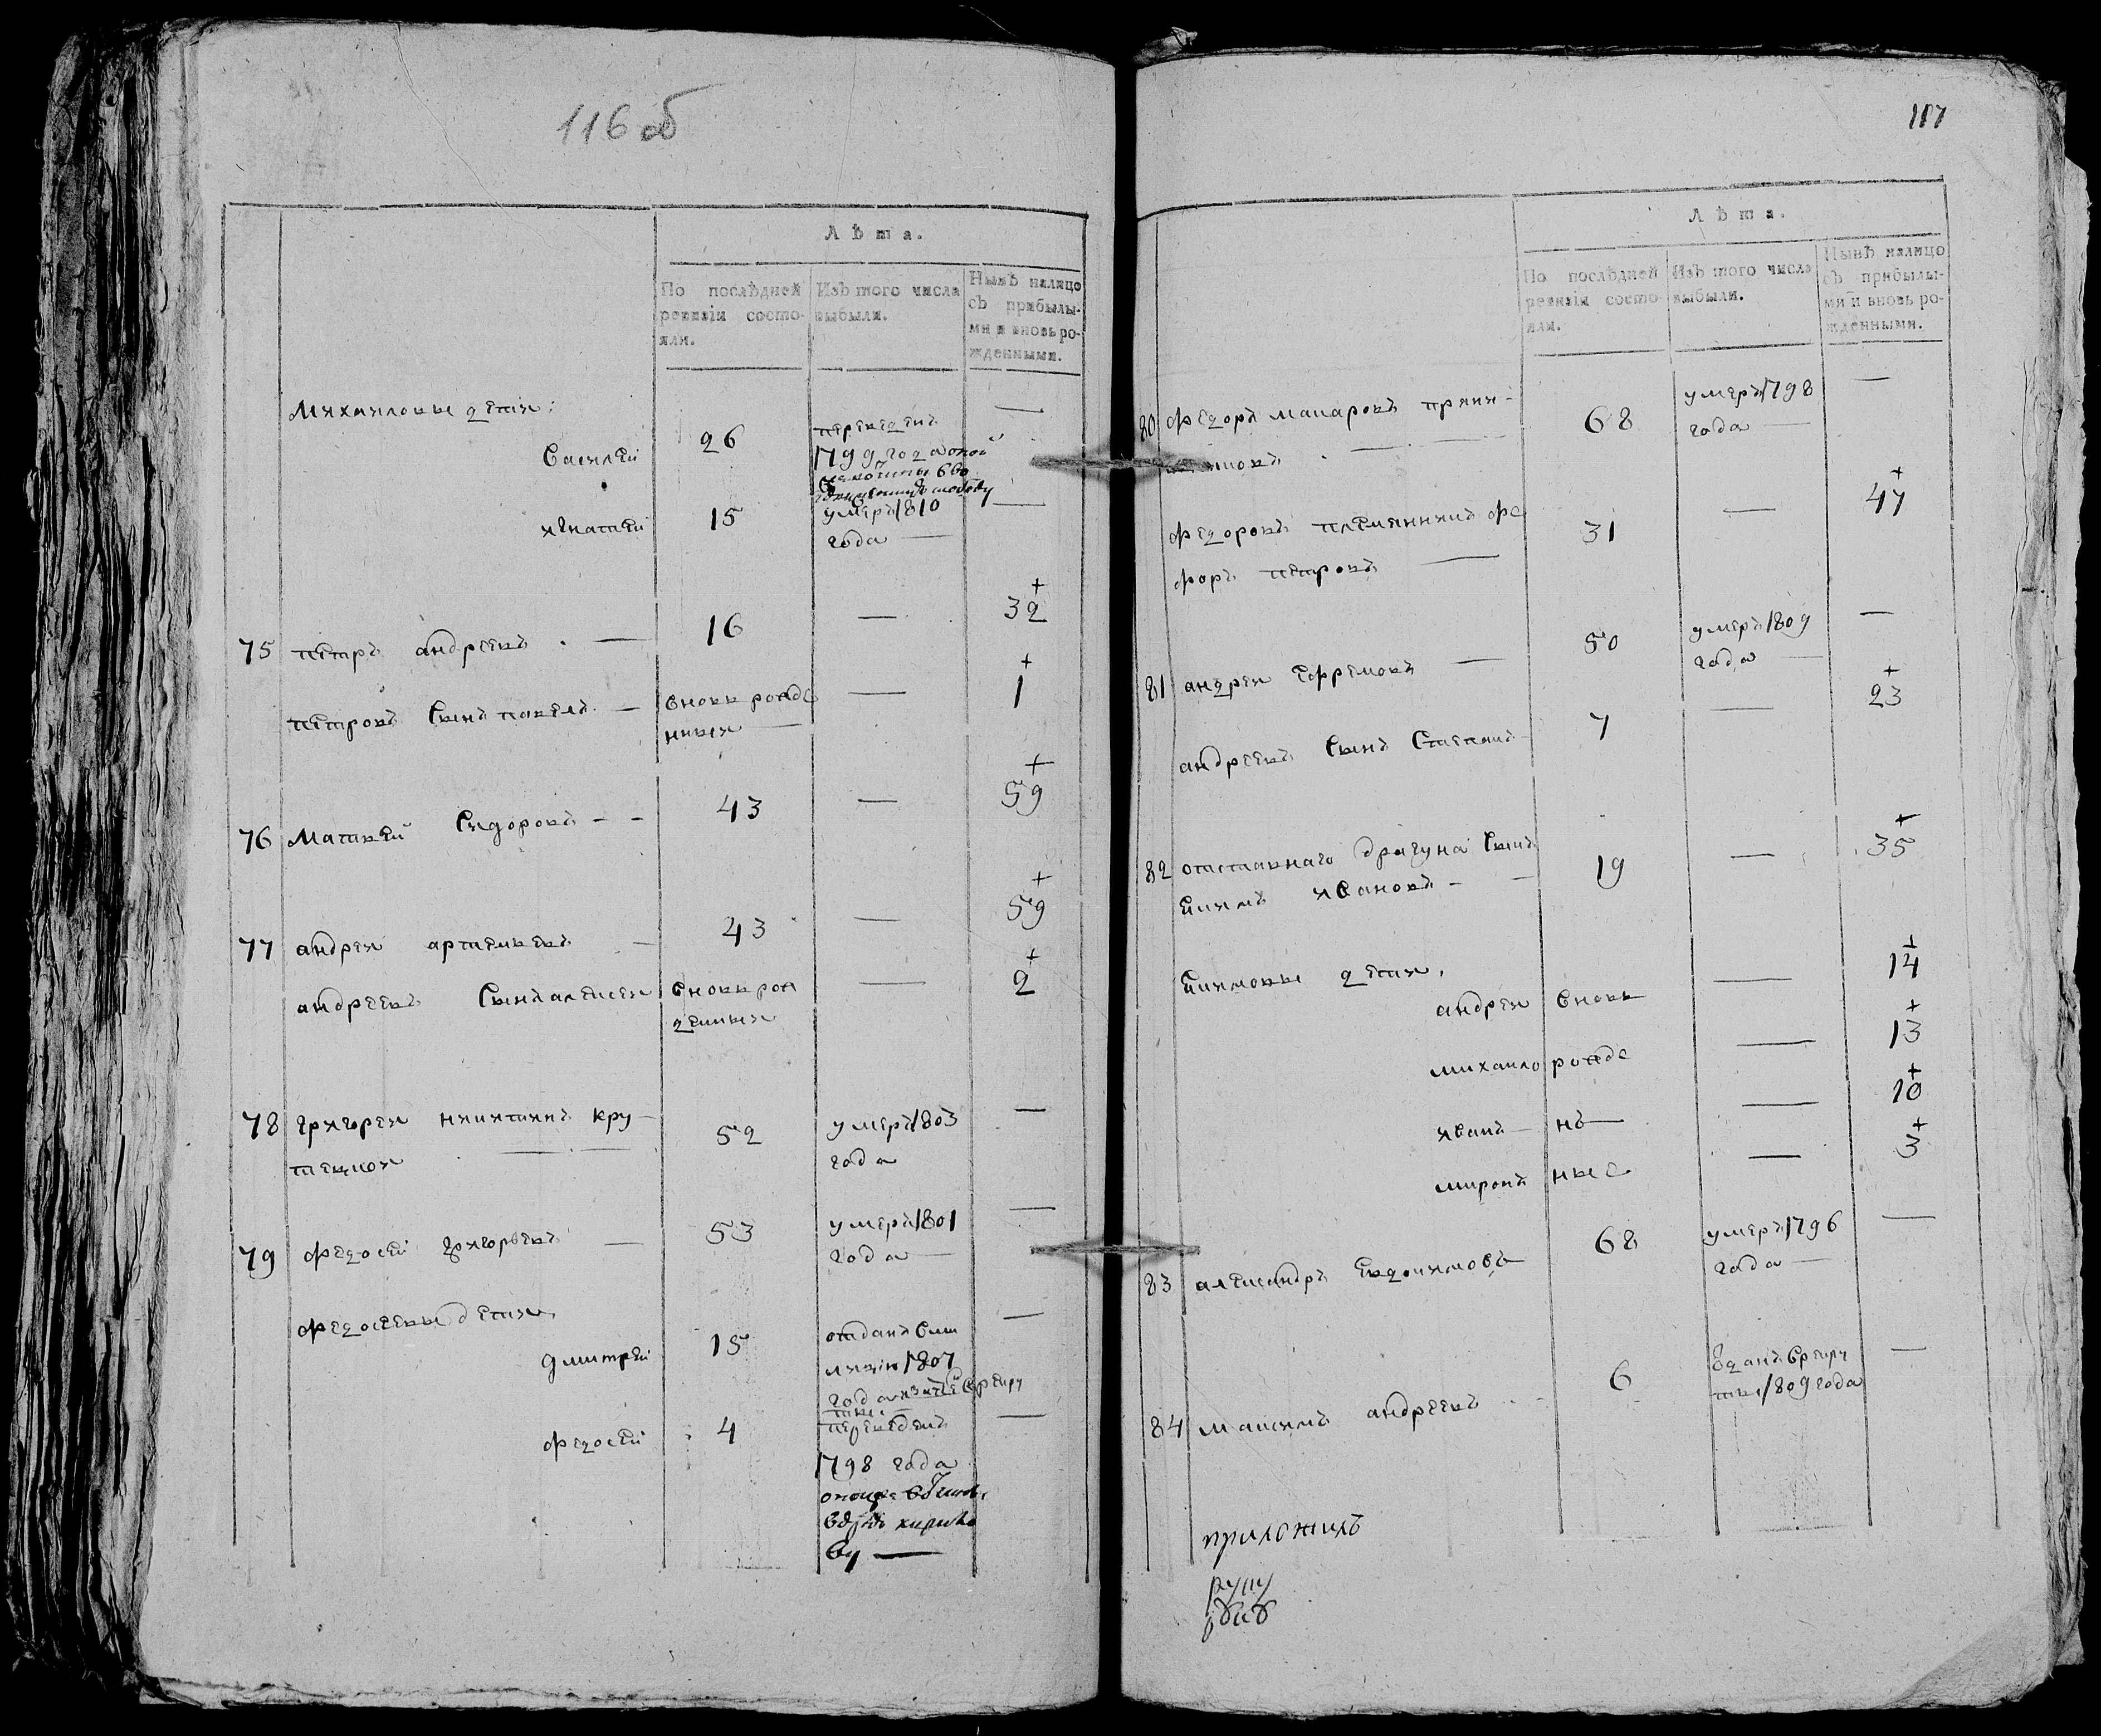 116 об
Лѣта.
По послѣдней ревизіи состо-
яли.
Изъ того числа
выбыли.
Нынѣ налицо
съ прибылы-
ми и вновь ро-
жденными.
Михаиловы дети:
Василей 26 переведенъ
1799 года
игнатей 15 умеръ 1810
года —
75 петръ андреевъ — 16 — 32
петровъ сынъ павелъ — вновь рожде — 1
ныи
76 Матвей Сидоровъ - - 43 — 59
77 андреи артемьевъ — 43 — 59
андреевъ сынъ алексеи вновь рож — 2
денныи
78 григореи никитинъ кру- 52 умеръ 1803 —
года
79 федосеи григорьевъ — 53 умеръ 1801 —
года —
федосеевы дети
дмитреи 15 отданъ вми —
лицию 1807
года
федосеи 4 переведенъ —
1798 года
117
Лѣта.
По послѣдней
ревизіи состо-
яли.
Изъ того числа
выбыли.
Нынѣ налицо
съ прибылы-
ми и вновь ро-
жденными.
80 федоръ макаровъ 68 умеръ 1798 —
года —
федоровъ племянникъ фе 31 — 47
форъ петровъ —
81 андреи ефремовъ — 50 умеръ 1809 —
года —
андреевъ сынъ Степанъ 7 — 23
82 отставнаго драгуна сынъ 19 — 35
екимъ ивановъ - -
екимовы дети,
андреи вновь — 14
михаило рожде — 13
иванъ — нъ — 10
миронъ ные — 3
83 александръ евдокимовъ 68 умеръ 1796 —
года —
84 максимъ андреевъ 6 вданъ врекру —
ты 1809 года
приложилъ
руку